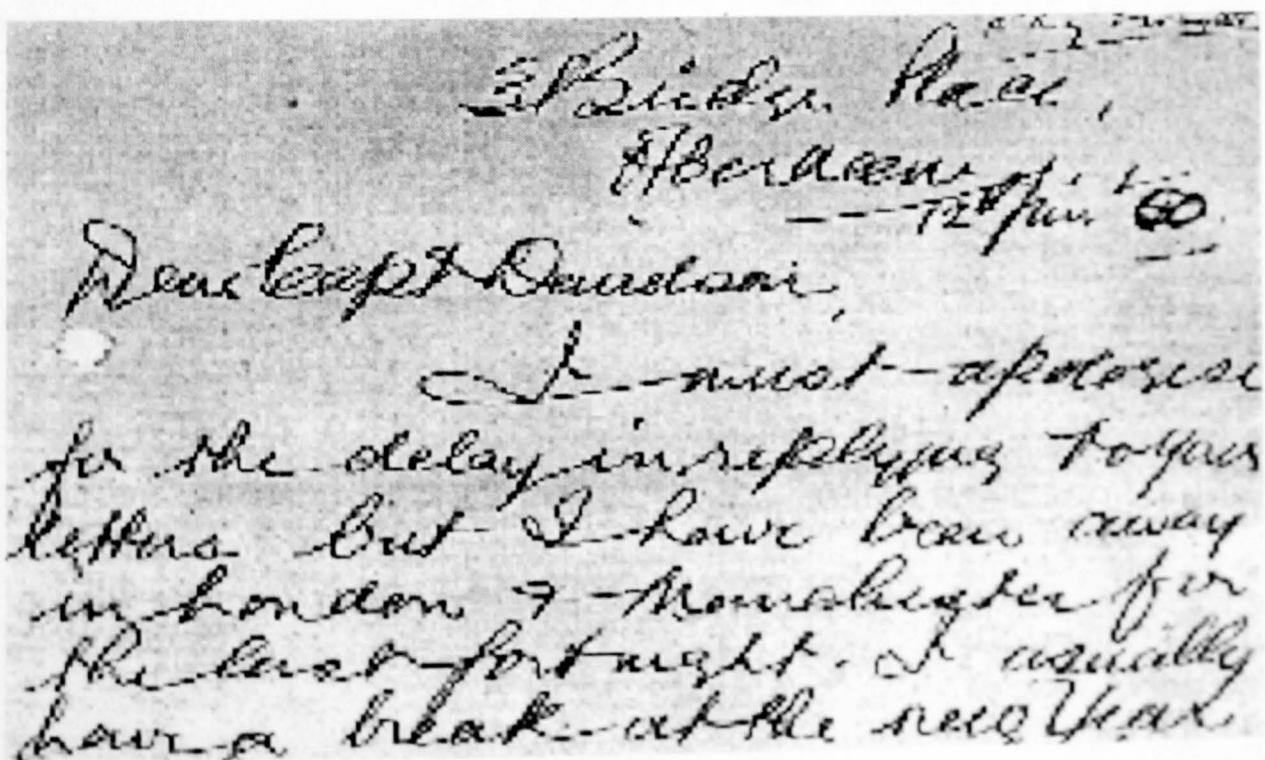 3 Bridge Place,
Aberdeen
12th Jan. 60
Dear Capt Davidson,
I must apologise
for the delay in replying to your
letters but I have been away
in London & Manchester for
the last fortnight. I usually
have a break at the new Year